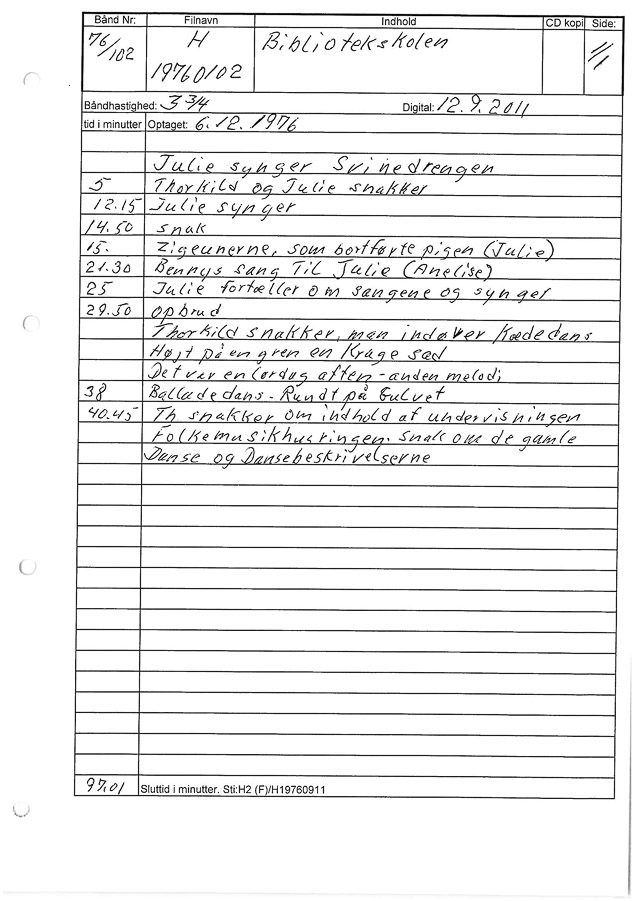 Bånd Nr: Filnavn Indhold CD kopi Side:
76/102 H Bibliotekskolen 1/1
19760102
Båndhastighed: 3 3/4 Digital: 12.9.2011
tid i minutter Optaget: 6.12.1976
Julie synger Svinedrengen
5 Thorkild og Julie snakker
12.15 Julie synger
14.50 snak
15. Zigeunerne, som bortførte pigen (Julie)
21.30 Bennys sang Til Julie (Anelise)
25 Julie fortæller om sangene og synger
29.50 opbrud
Thorkild snakker, man indøver Kædedans
Højt på en gren en Krage sad
Det var en lørdag aften - anden melodi
38 Balladedans - Rundt på Gulvet
40.45 Th snakker om indhold af undervisningen
Folkemusikhusringen. snak om de gamle
Danse og Dansebeskrivelserne
97.01 Sluttid i minutter. Sti:H2 (F)/H19760911